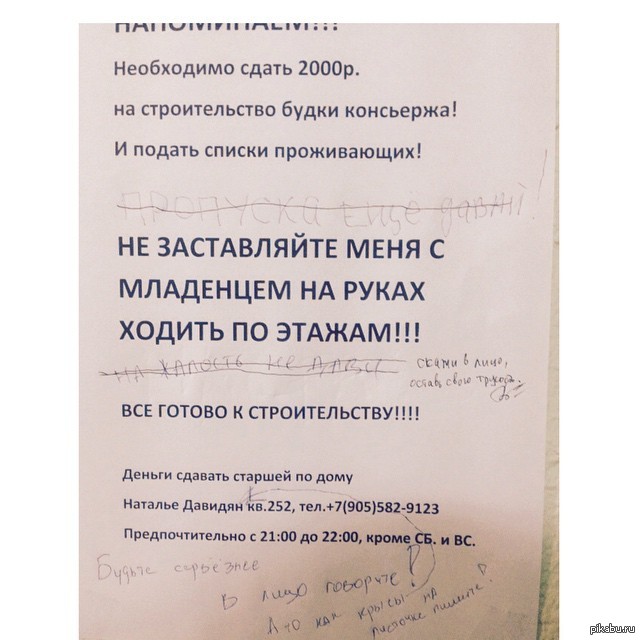 НАПОМИНАЕМ!!!
Необходимо сдать 2000р.
на строительство будки консьержа!
И подать списки проживающих!
ПРОПУСКА ЕЩЁ давай!
НЕ ЗАСТАВЛЯЙТЕ МЕНЯ С
МЛАДЕНЦЕМ НА РУКАХ
ХОДИТЬ ПО ЭТАЖАМ!!!
НА ЖАЛОСТЬ НЕ ДАВИ
скажи в лицо,
оставь свою
ВСЕ ГОТОВО К СТРОИТЕЛЬСТВУ!!!!
Деньги сдавать старшей по дому
Наталье Давидян кв.252, тел.+7(905)582-9123
Предпочтительно с 21:00 до 22:00, кроме СБ. и ВС.
Будьте серьёзнее
В лицо говорите!
А то как крысы на
листочке пишите!
pikabu.ru